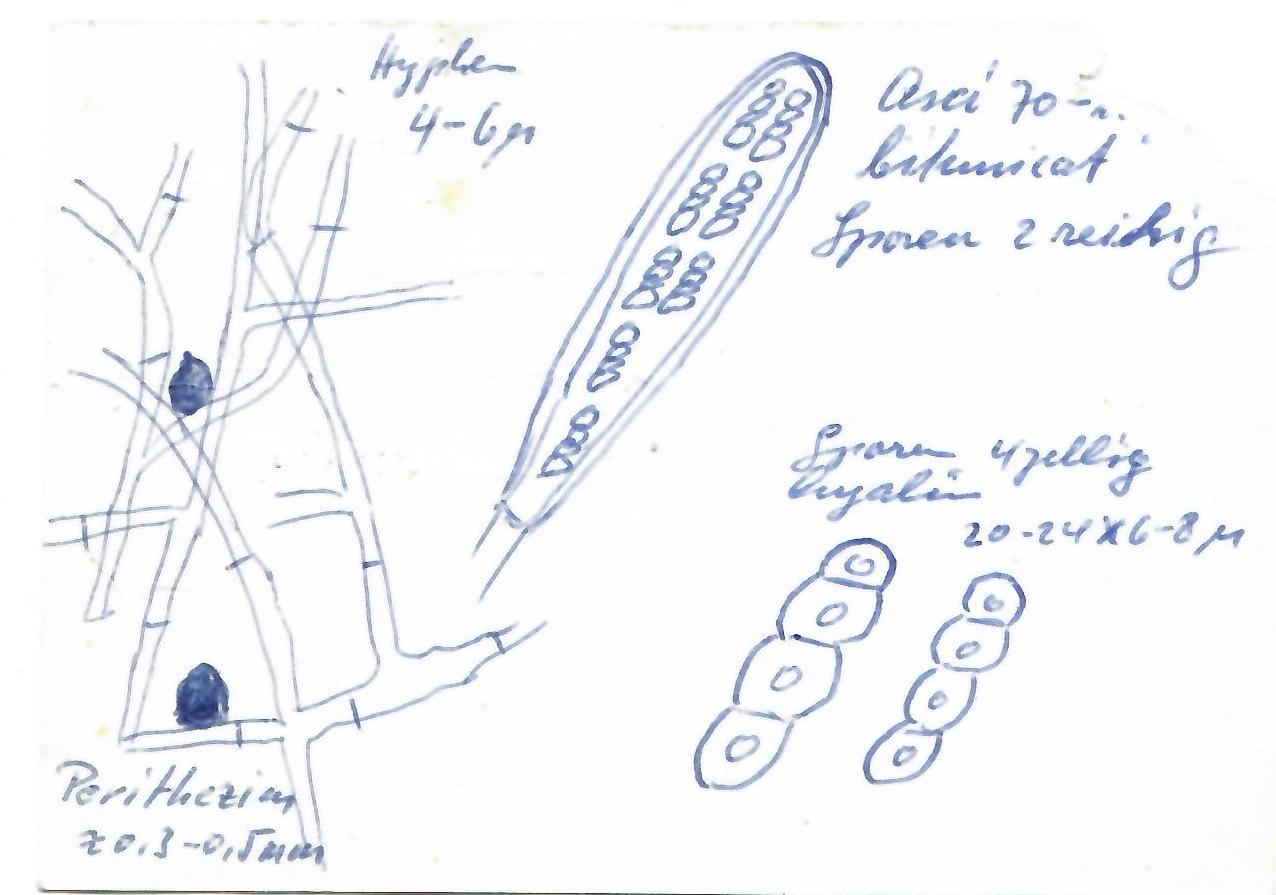 Hyphen
4-6 µ
Asci 70-
bitunicat
Sporen 2 reihig
Sporen 4 zellig
hyalin
20-24 x 6-8 µ
Perithezien
± 0,3-0,5 mm